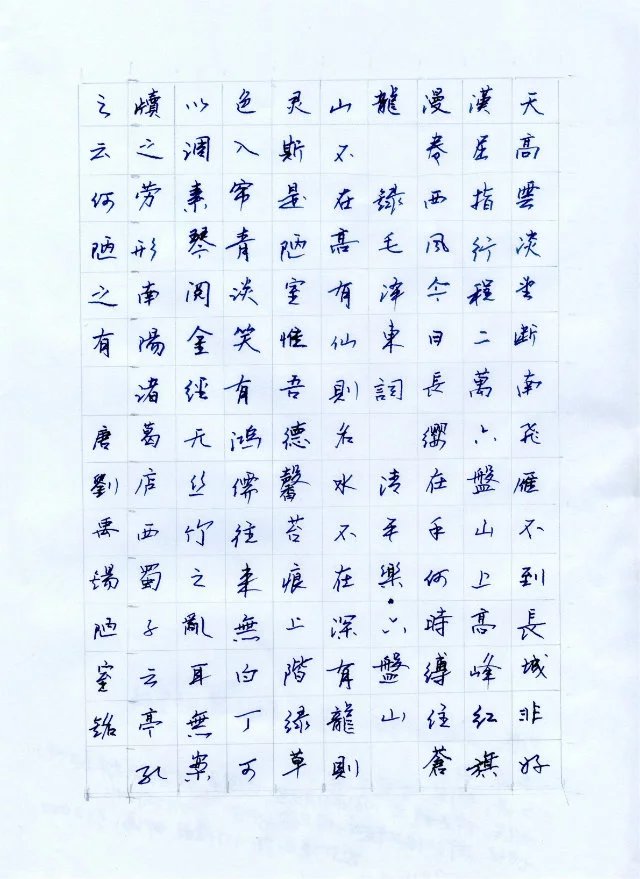 天高雲淡望断南飛雁不到長城非好
漢屈指行程二萬六盤山上高峰紅旗
漫卷西風今日長纓在手何時縛住蒼
龍 録毛澤東詞 清平樂·六盤山
山不在高有仙則名水不在深有龍則
灵斯是陋室惟吾德馨苔痕上階緑草
色入帘青淡笑有鴻儒往来無白丁可
以調素琴閲金經无丝竹之亂耳無案
牘之劳形南陽諸葛店西蜀子云亭孔
子云何陋之有 唐劉禹锡陋室銘